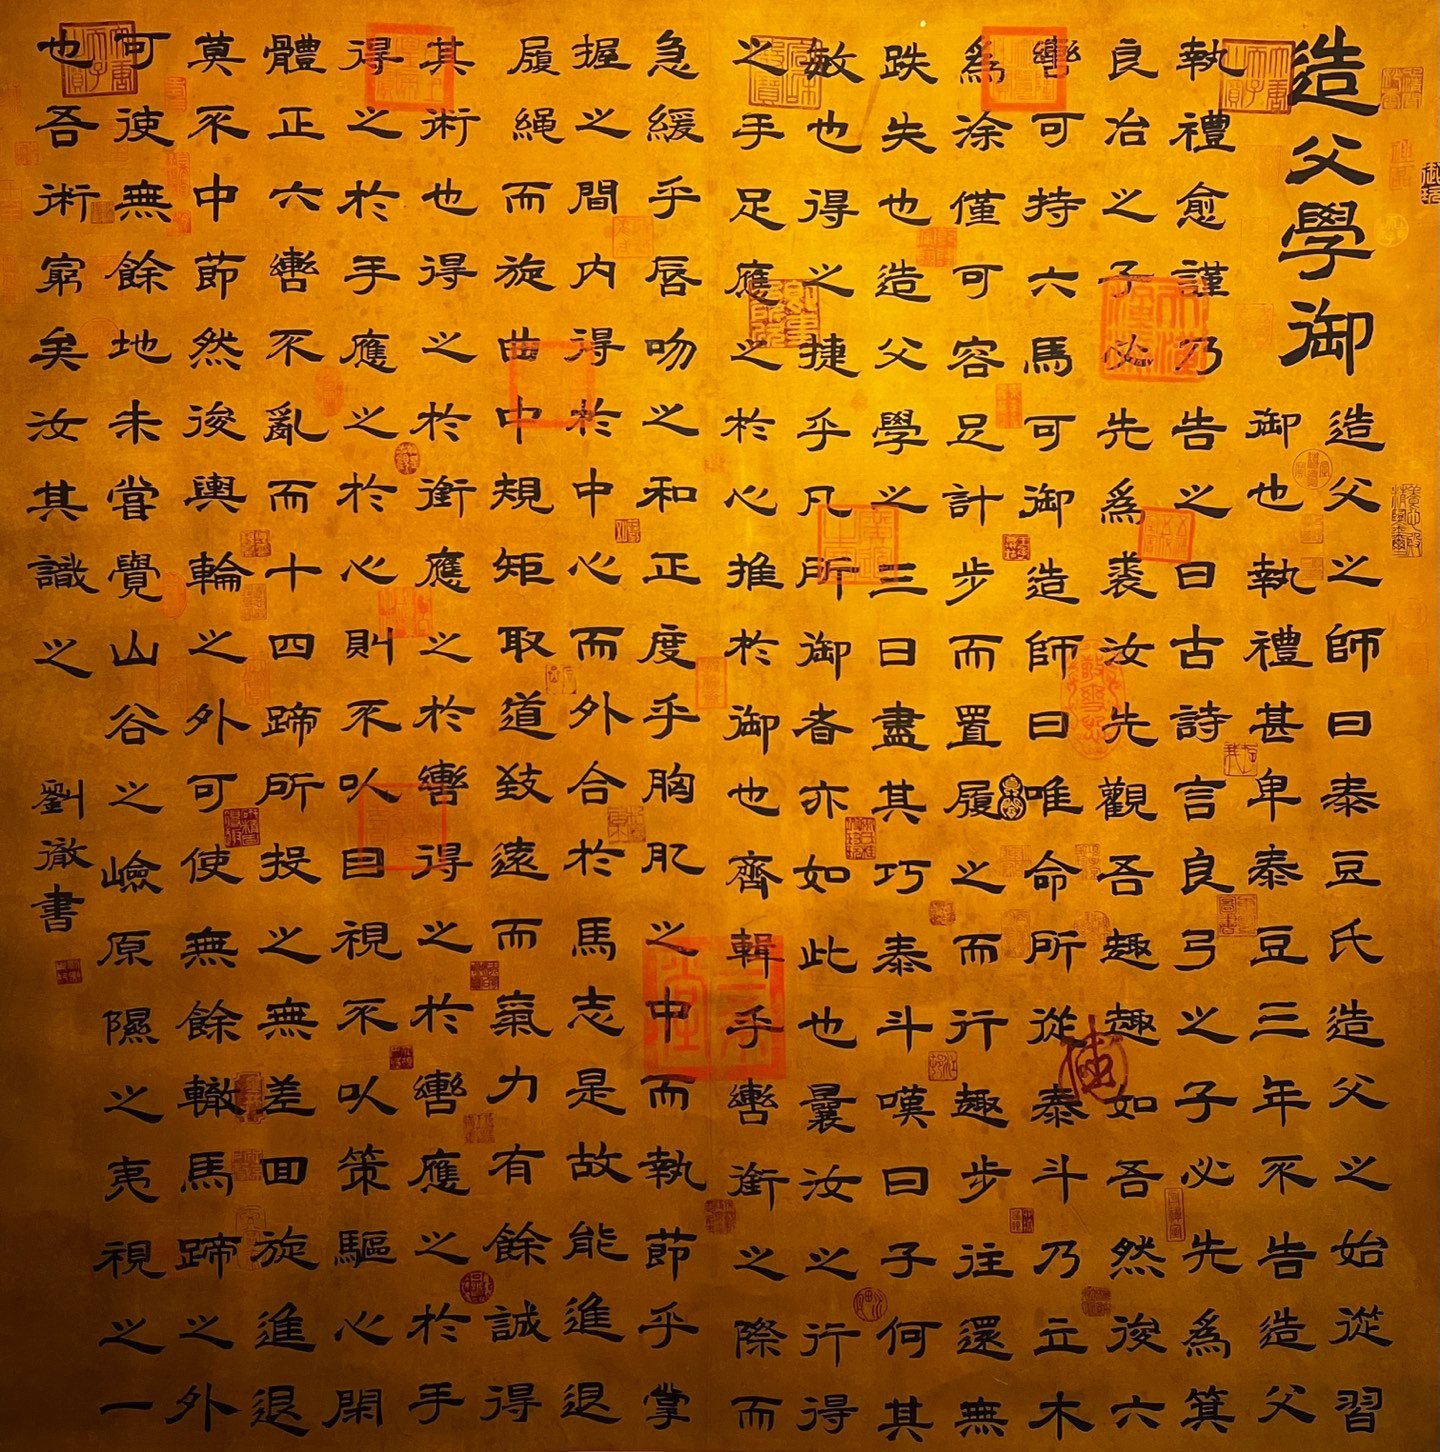 造父學御
造父之師曰泰豆氏造父之始從習
御也執禮甚卑泰豆三年不告造父
執禮愈謹乃告之曰古詩言良弓之子必先爲箕
良冶之子必先爲裘汝先觀吾趣趣如吾然後六
轡可持六馬可御造師曰唯命所從泰斗乃立木
爲涂僅可容足計步而置履之而行趣步往還無
跌失也造父學之三日盡其巧泰斗嘆曰子何其
敏也得之捷乎凡所御者亦如此也曩汝之行得
之手足應之於心推於御也齊輯乎轡銜之際而
急緩乎唇吻之和正度乎胸肊之中而執節乎掌
握之間內得於中心而外合於馬志是故能進退
履繩而旋曲中規矩取道致遠而氣力有餘誠得
其術也得之於銜應之於轡得之於轡應之於手
得之於手應之於心則不以目視不以策驅心閑
體正六轡不亂而十四蹄所投之無差回旋進退
莫不中節然後輿輪之外可使無餘轍馬蹄之外
可使無餘地未嘗覺山谷之嶮原隰之夷視之一
也吾術窮矣汝其識之
劉徹書